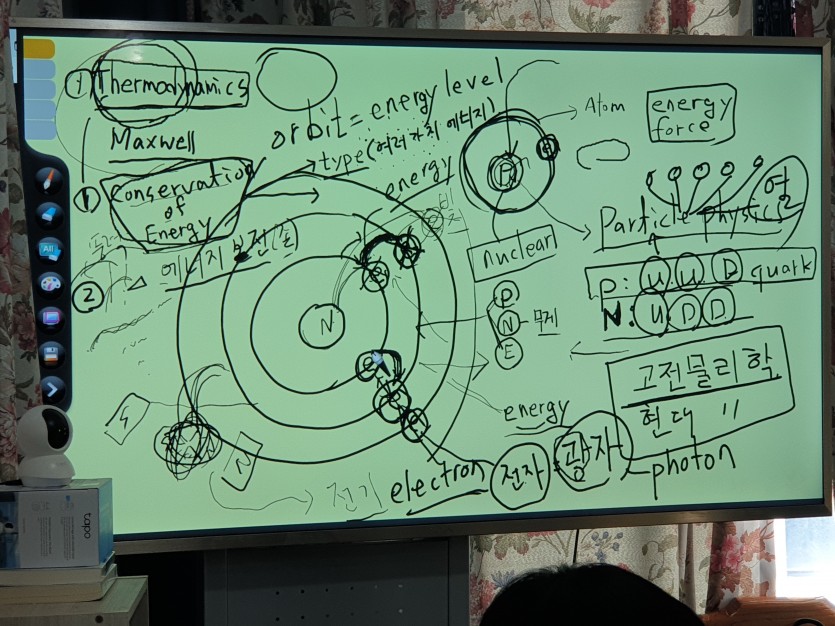 ① Thermodynamics
Maxwell
① Conservation
of
Energy
② 에너지 보전(존)
orbit = energy level
type (여러가지 에너지)
energy
Atom
energy
force
P
nuclear
Particle physics
열
P: U U D quark
N: U D D
P
N - 무게
E
N
e
e
고전물리학
현대 "
energy
전기 electron 전자 광자
photon
N
All
tapo